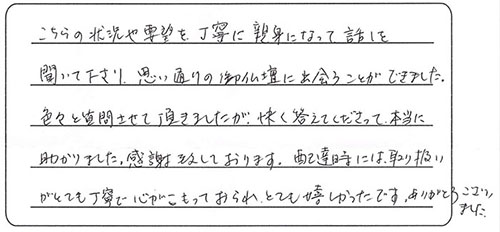 こちらの状況や要望を、丁寧に親身になって話しを
聞いて下さり、思い通りの御仏壇に出会うことができました。
色々と質問させて頂きましたが、快く答えてくださって、本当に
助かりました。感謝致しております。配達時には、取り扱い
がとても丁寧で心がこもっておられ、とても嬉しかったです。ありがとうござい
ました。